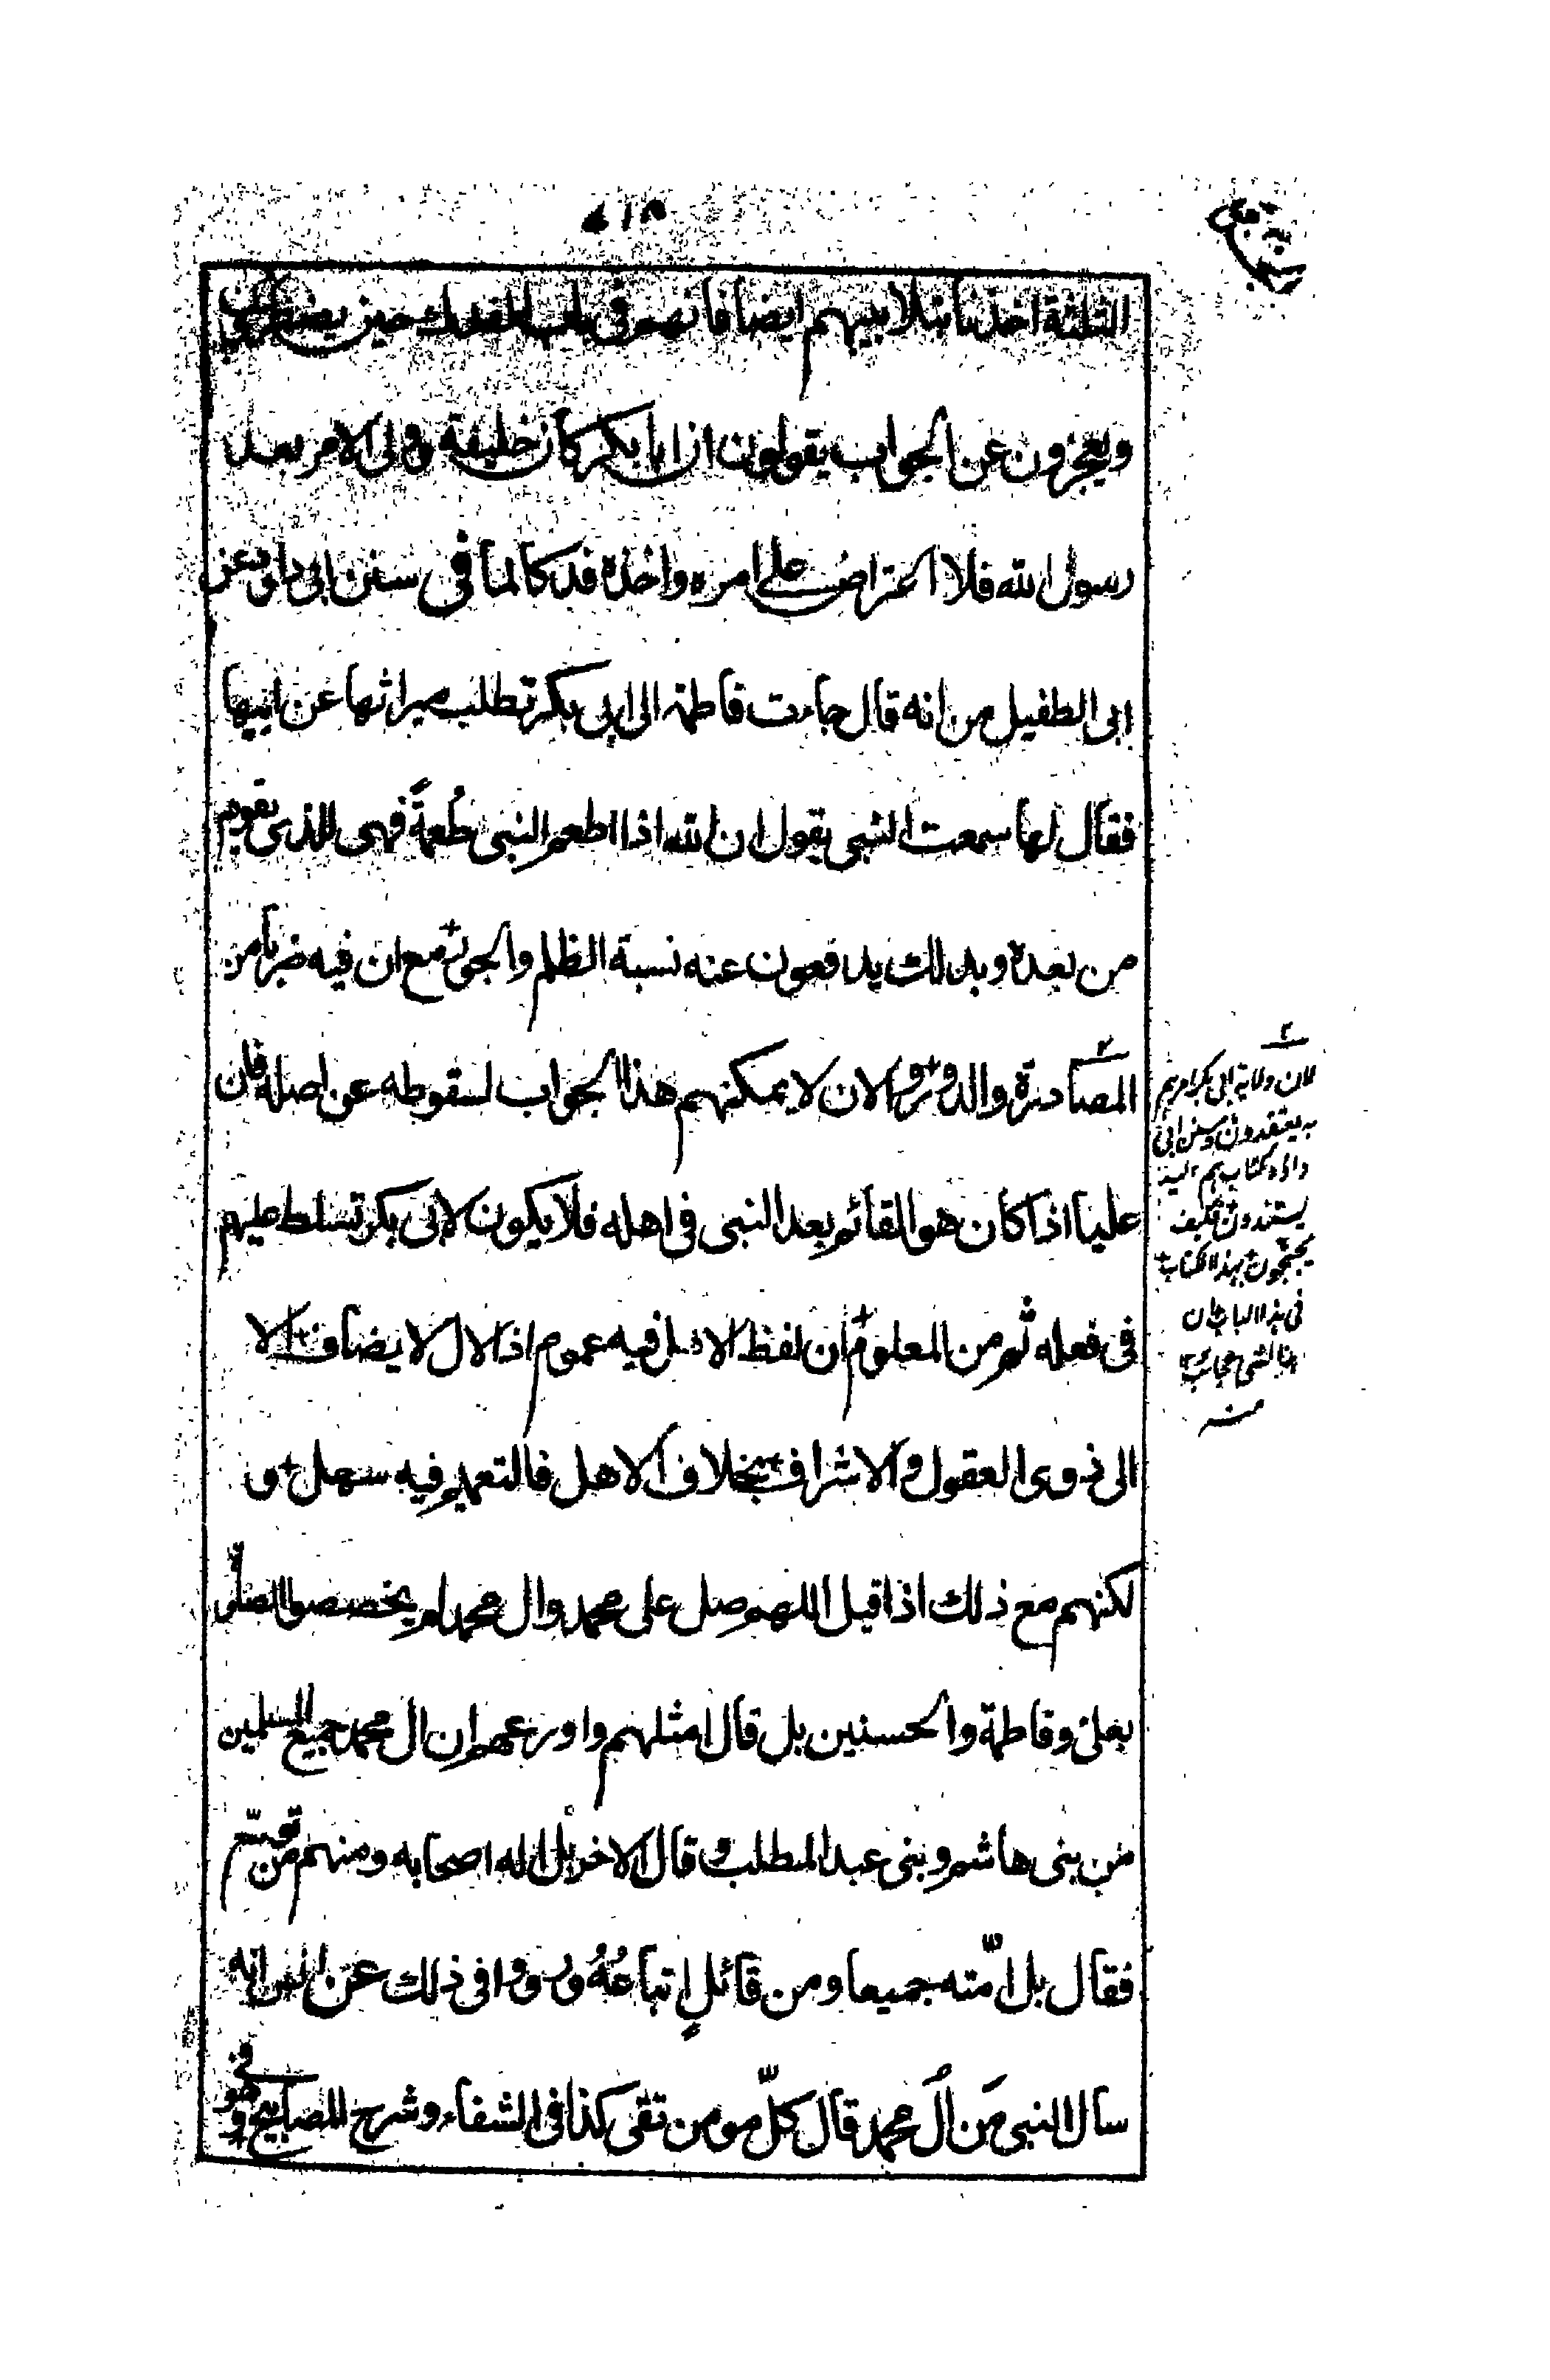 الثلثة اخذنا بتلابيبهم ايضا فانهم فى باب الفدك حين
ويعجزون عن الجواب يقولون ان ابا بكر كان خليفة ولى الامر بعد
رسول الله فلا اعتراض على امره واخذه فدكا لما فى سنن ابى داود عن
ابى الطفيل من انه قال جاءت فاطمة الى ابى بكر تطلب ميراثها عن ابيها
فقال لها سمعت النبى يقول ان الله اذا اطعم النبى طُعمةً فهى للذى يقوم
من بعده وبذلك يدفعون عنه نسبة الظلم والجور مع ان فيه ضربا من
المصادرة والدور والان لا يمكنهم هذا الجواب لسقوطه عن اصله فان
عليا اذا كان هو القائم بعد النبى فى اهله فلا يكون لابى بكر تسلط عليهم
فى فعله ثم من المعلوم ان لفظ الاهل فيه عموم اذ الال لا يضاف الا
الى ذوى العقول والاشراف بخلاف الاهل فالتعميم فيه سهل و
لكنهم مع ذلك اذا قيل اللهم صل على محمد وال محمد لم يخصصوا الصلٰى
بعلى وفاطمة والحسنين بل قال امثلهم واورعهم ان ال محمد جميع المسلمين
من بنى هاشم وبنى عبد المطلب وقال الاخر بل اله اصحابه ومنهم من توسّع
فقال بل امّته جميعا ومن قائلٍ اتباعُهُ ورووا فى ذلك عن انس انه
سال النبى مَن اٰل محمد قال كلّ مومن تقى كذا فى الشفاء وشرح المصابيح وهو فى
٢
لان ولاية ابى بكر امر هم
به يعتقدون وسنن ابى
داود كتاب هم اليه
يستندون فكيف
يحتجون بهذا الكتاب
فى هذا الباب ان
هذا لشى عجاب
منه